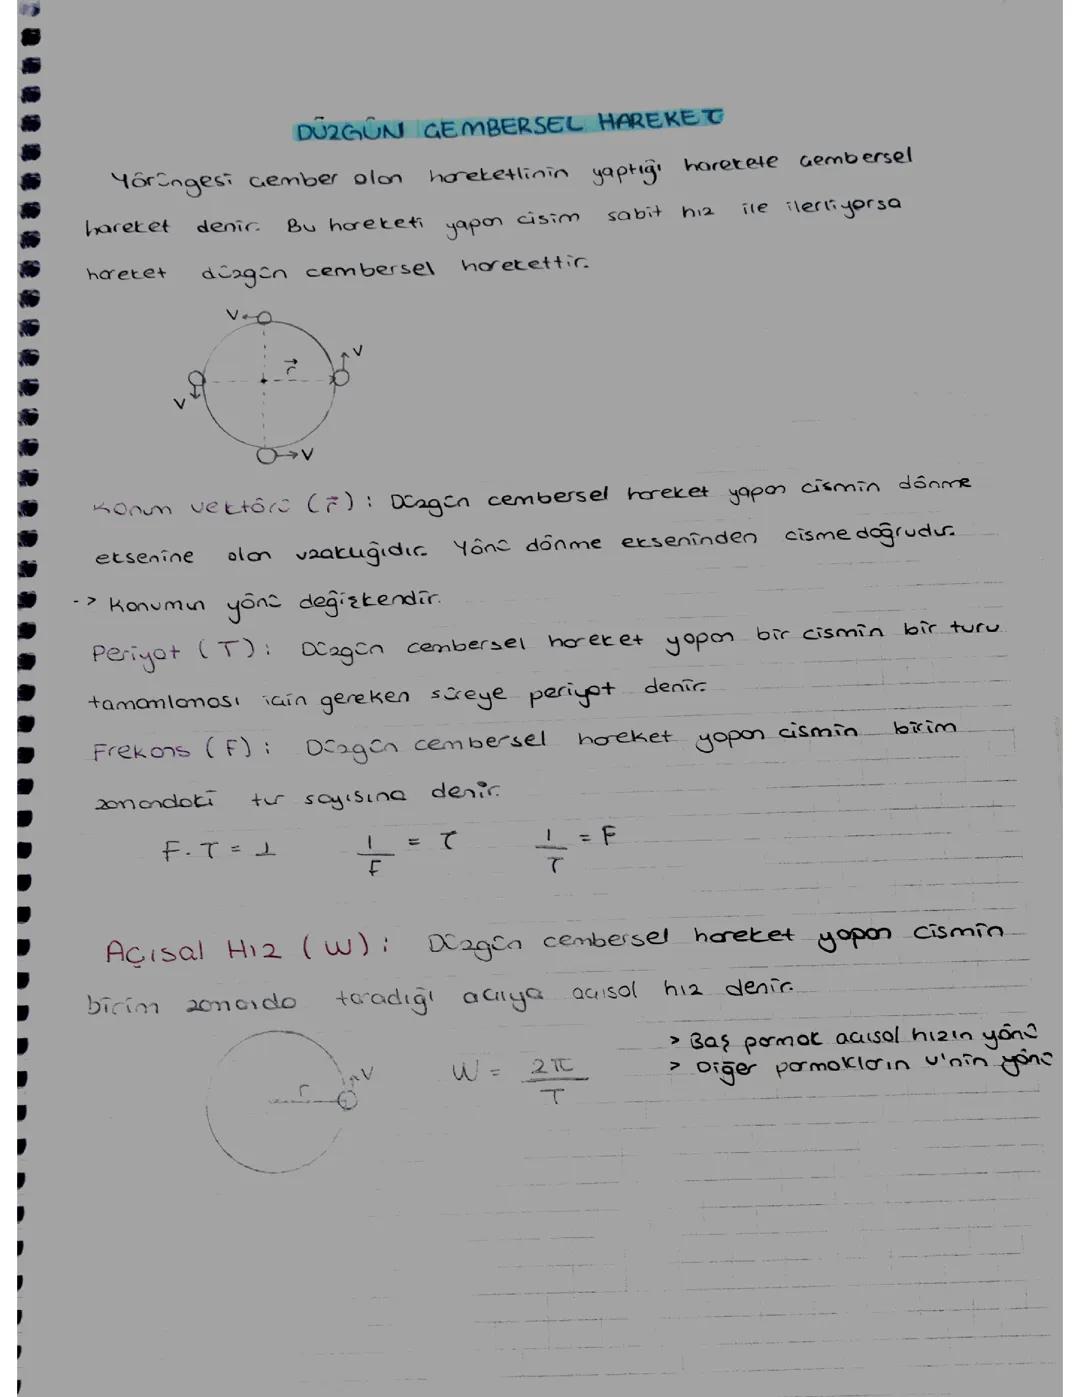 DÜZGÜN ÇEMBERSEL HAREKET
Yörüngesi çember olan hareketlinin yaptığı harekete çembersel
hareket denir. Bu hareketi yapan cisim sabit hız ile ilerliyorsa
hareket düzgün çembersel harekettir.
V
r
V
V
V
Konum vektörü (r): Düzgün çembersel hareket yapan cismin dönme
eksenine olan uzaklığıdır. Yönü dönme ekseninden cisme doğrudur.
-> Konumun yönü değişkendir.
Periyot (T): Düzgün çembersel hareket yapan bir cismin bir turu
tamamlaması için gereken süreye periyot denir.
Frekans (F): Düzgün çembersel hareket yapan cismin birim
zamandaki tur sayısına denir.
F.T = 1 1/F = T 1/T = F
Açısal Hız (W): Düzgün çembersel hareket yapan cismin
birim zamanda taradığı açıya açısal hız denir.
> Baş parmak açısal hızın yönü
> Diğer parmakların v'nin yönü
r V W = 2π/T